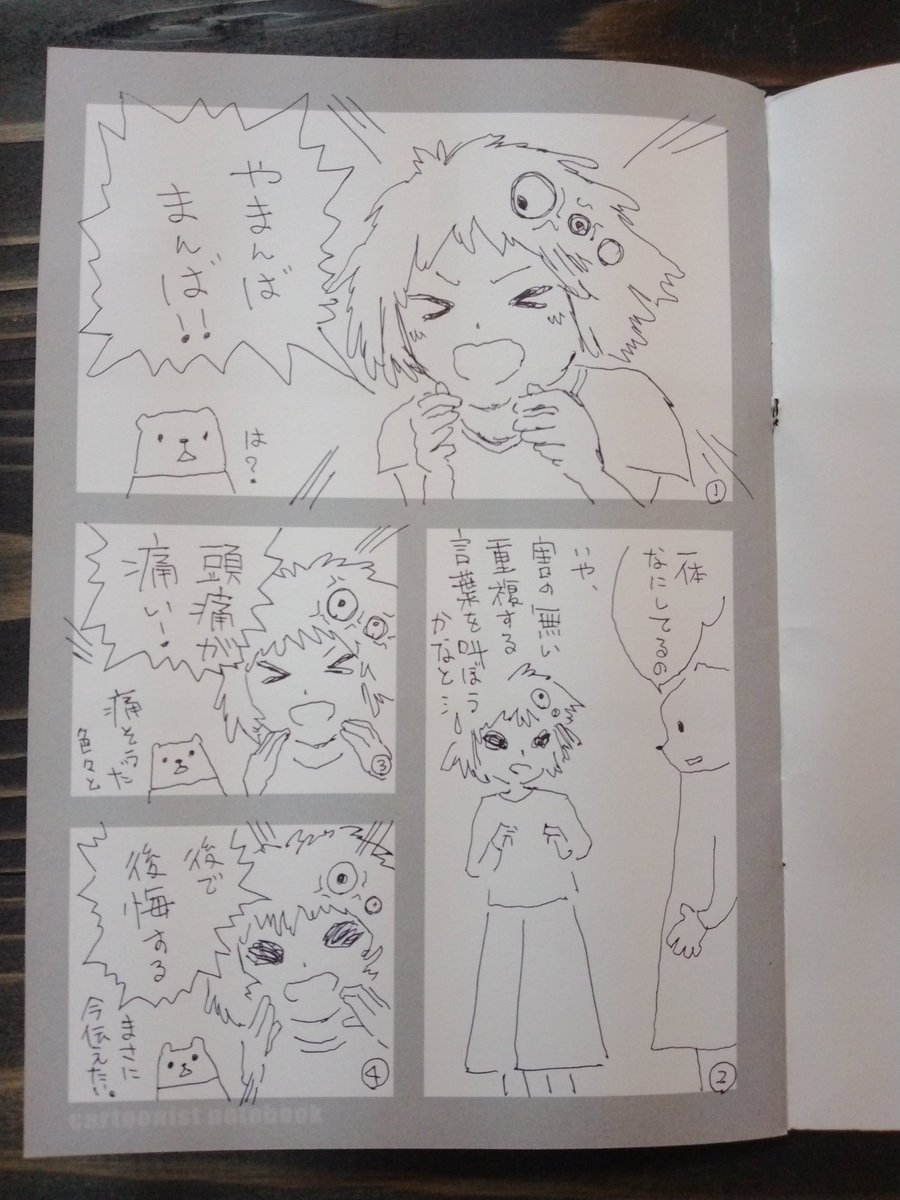 やまんば
まんば!!
は?
①
一体
なにしてるの
いや、
害の無い
重複する
言葉を叫ぼう
かなと…
②
頭痛が
痛いー
痛そうだ
色々と
③
後で
後悔する
まさに
今伝えたい。
④
cartoonist notebook